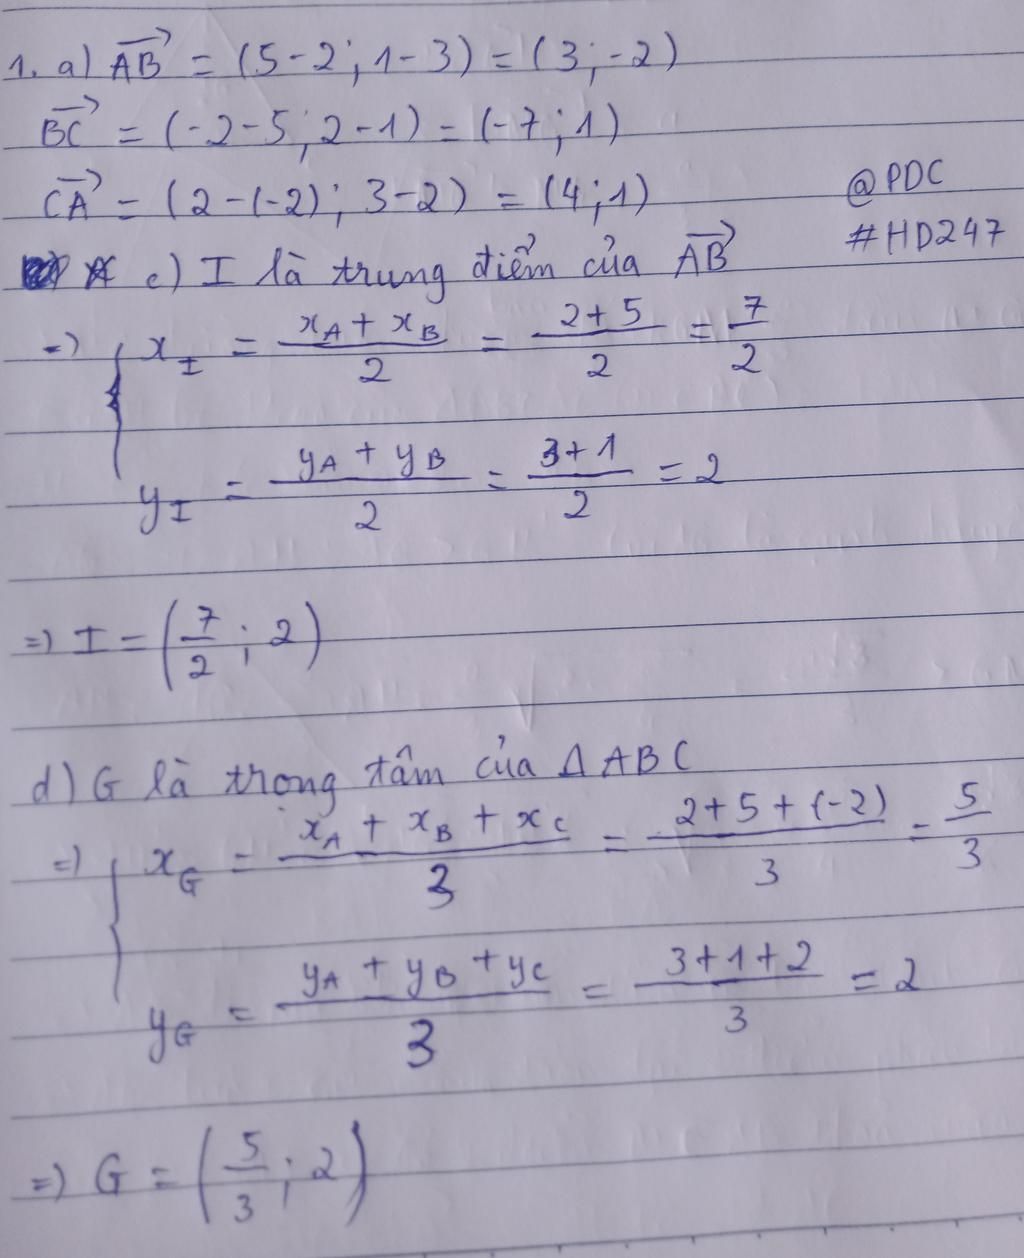 1. a) $\overrightarrow{AB}$ = (5-2; 1-3) = (3; -2)
$\overrightarrow{BC}$ = (-2-5; 2-1) = (-7; 1)
$\overrightarrow{CA}$ = (2-(-2); 3-2) = (4; 1)
@PDC
#HD247
c) I là trung điểm của $\overrightarrow{AB}$
=> { $x_I = \frac{x_A + x_B}{2} = \frac{2+5}{2} = \frac{7}{2}$
$y_I = \frac{y_A + y_B}{2} = \frac{3+1}{2} = 2$
=> $I = \left(\frac{7}{2}; 2\right)$
d) G là trọng tâm của Δ ABC
=> { $x_G = \frac{x_A + x_B + x_C}{3} = \frac{2+5+(-2)}{3} = \frac{5}{3}$
$y_G = \frac{y_A + y_B + y_C}{3} = \frac{3+1+2}{3} = 2$
=> $G = \left(\frac{5}{3}; 2\right)$